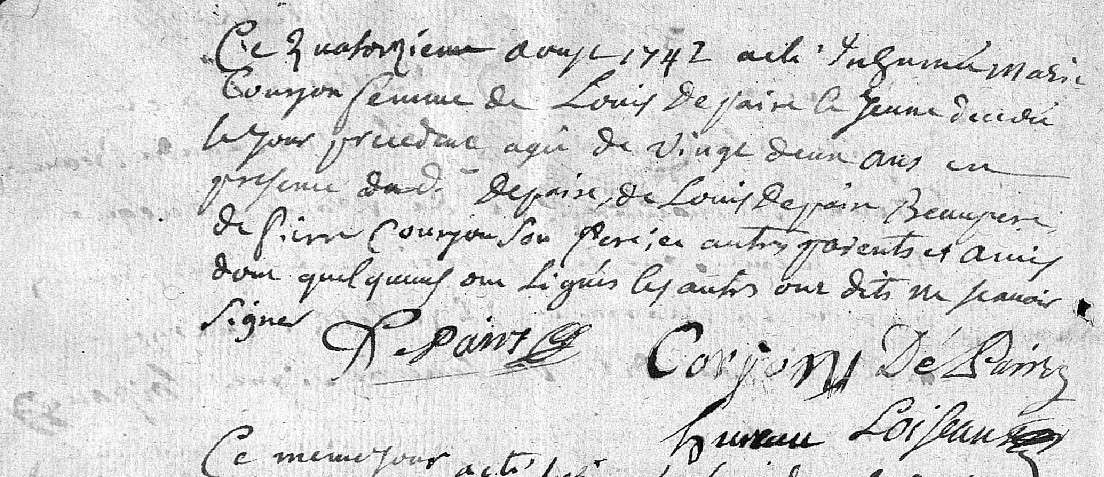 Ce quatorzieme aoust 1742 a eté Inhumée Marie
Courjon femme de Louis Depaire le Jeune decedée
le jour precedent agée de vingt deux ans en
presence du d. Depaire, de Louis Depaire Beaupere
de Pierre Courjon Son Pere, et autres parents et amis
dont quelques uns ont Signés les autres ont dits ne scavoir
Signer
De Paire Corjon Dé Paire
hureau Loiseau
Ce meme jour a eté